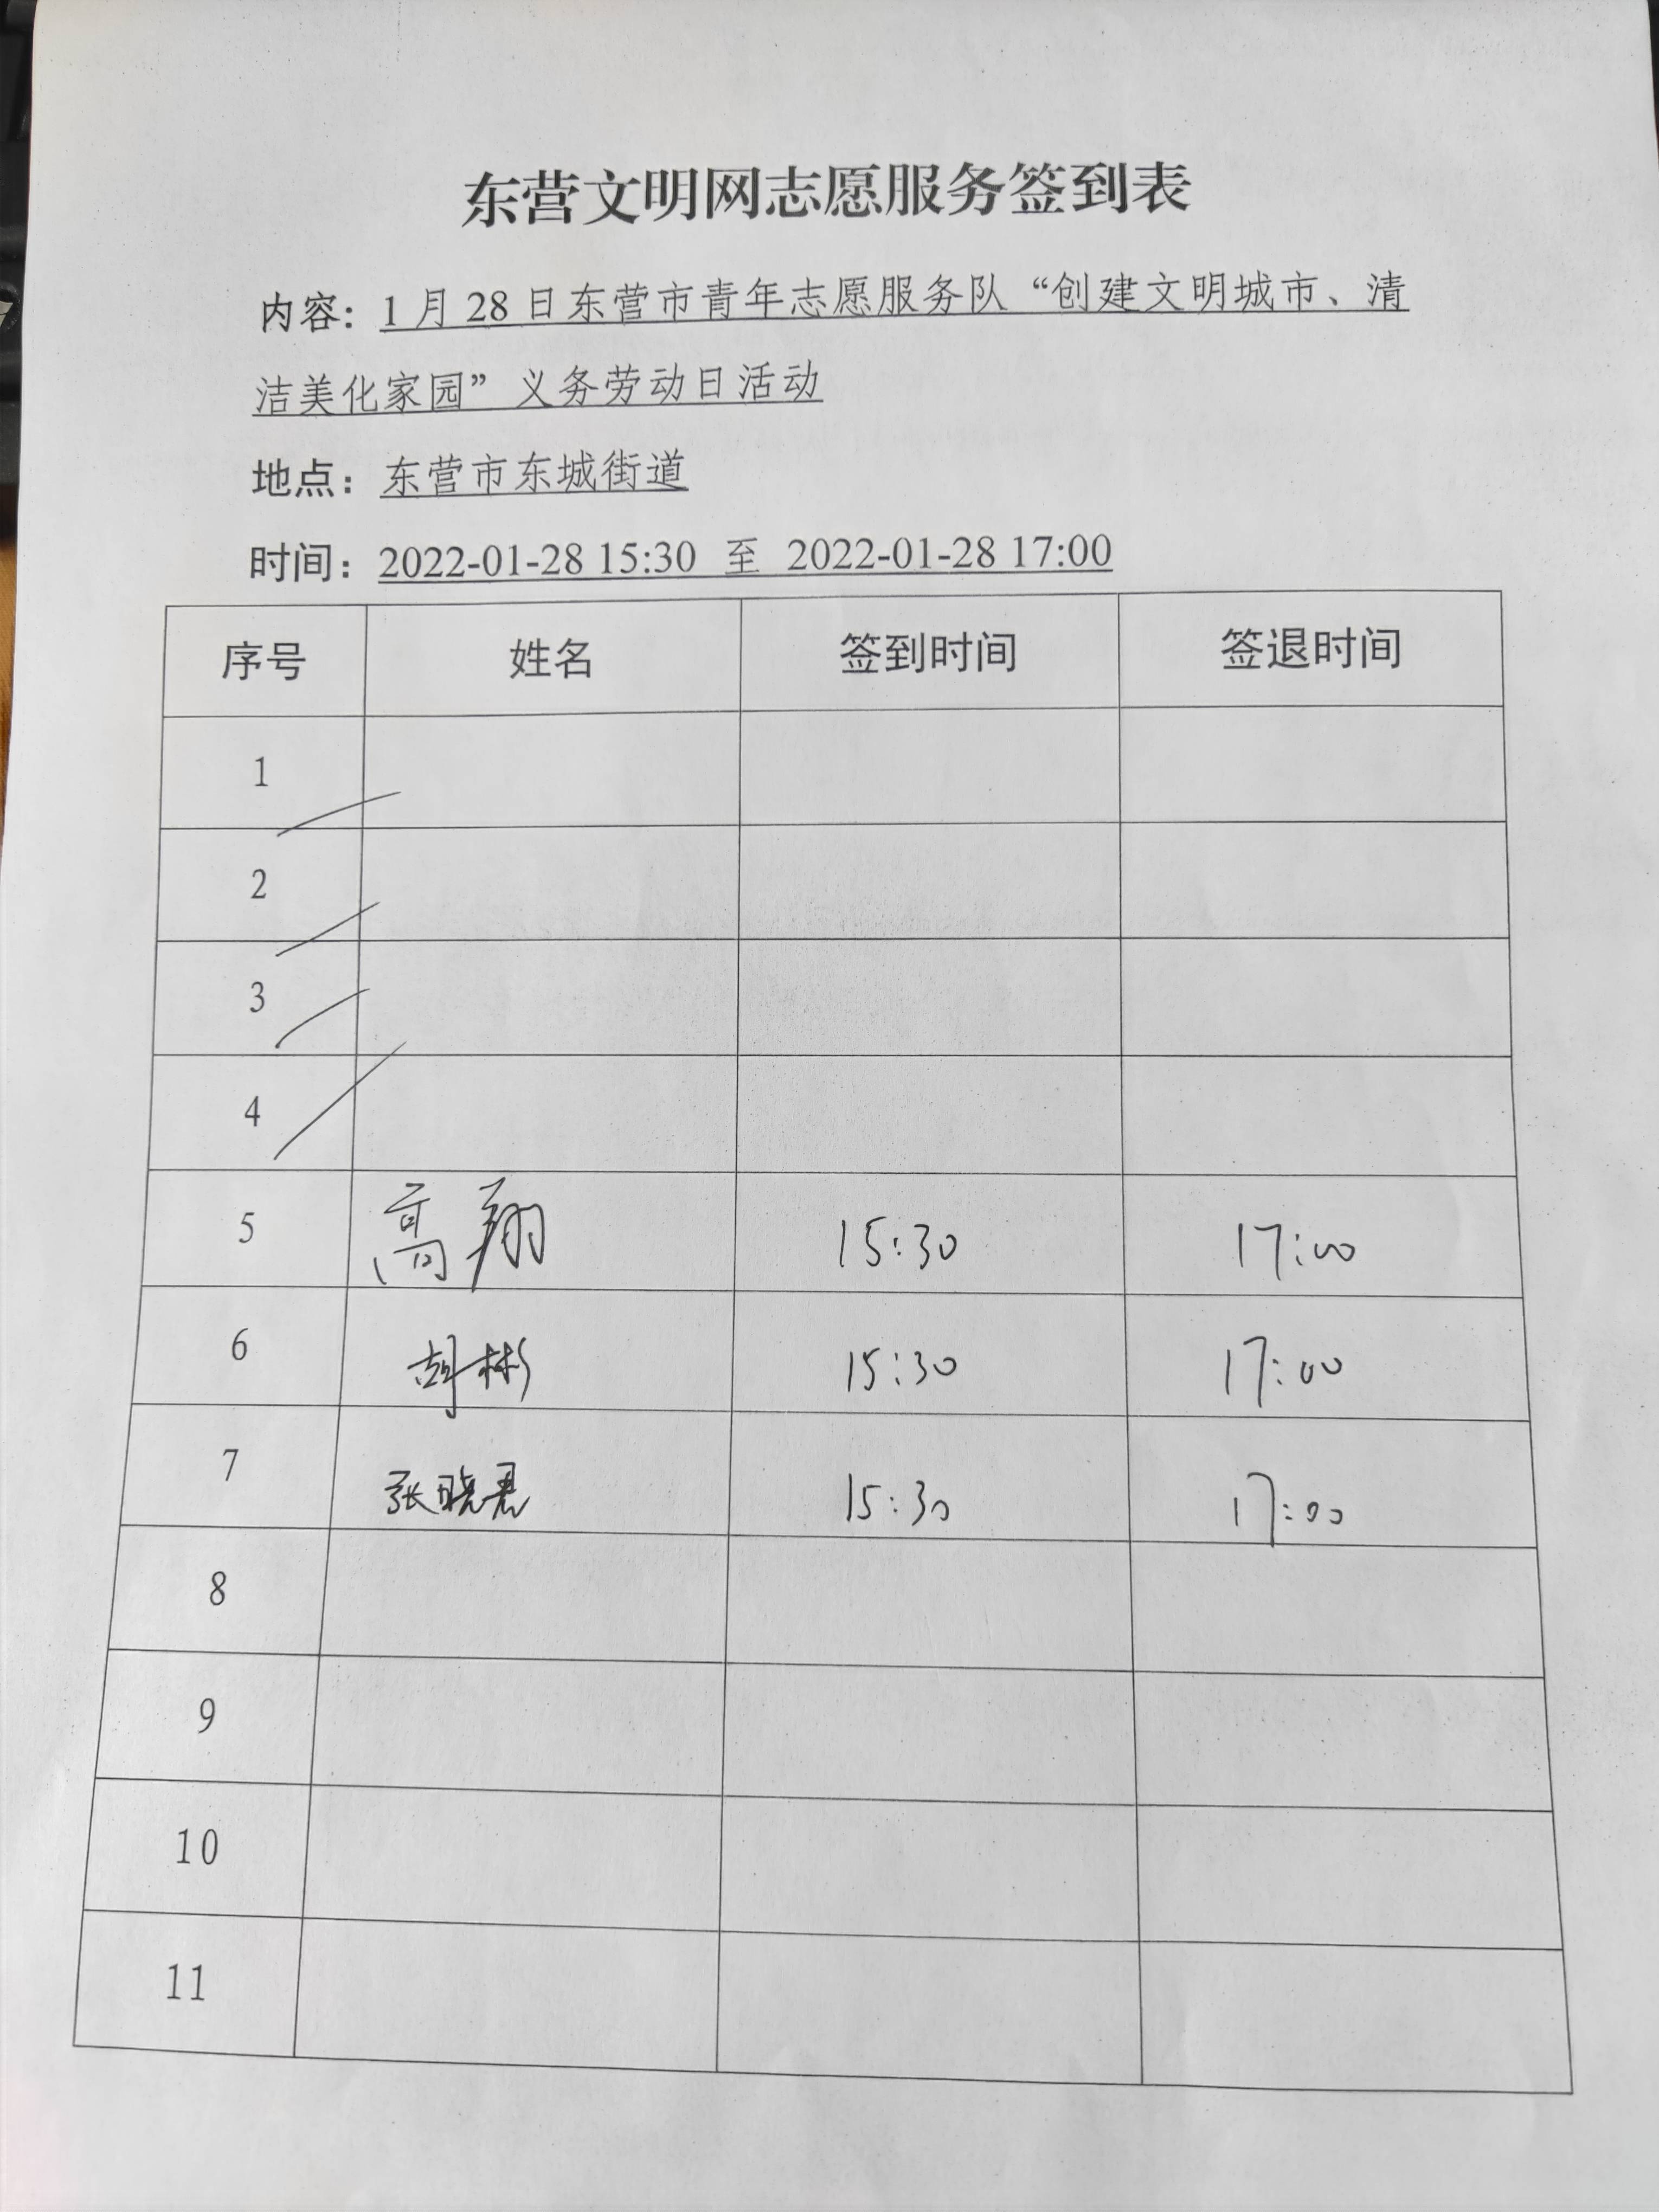 东营文明网志愿服务签到表
内容：1月28日东营市青年志愿服务队“创建文明城市、清
洁美化家园”义务劳动日活动
地点：东营市东城街道
时间：2022-01-28 15:30 至 2022-01-28 17:00
序号 姓名 签到时间 签退时间
1
2
3
4
5 高翔 15:30 17:00
6 胡彬 15:30 17:00
7 张晓君 15:30 17:00
8
9
10
11